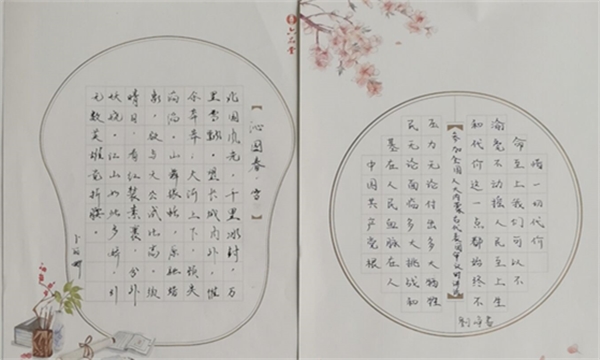 【沁园春·雪】
北国风光,千里冰封,万
里雪飘。望长城内外,惟
余莽莽,大河上下,顿失
滔滔。山舞银蛇,原驰蜡
象,欲与天公试比高。须
晴日,看红装素裹,分外
妖娆。江山如此多娇,引
无数英雄竞折腰。
六品堂
中国共产党根
基在人民血脉在人
民无论面临多大挑战和
压力无论付出多大牺牲
【参加全国人大内蒙古代表团审议时讲话】
和代价这一点都始终不
渝毫不动摇人民至上生
命至上我们可以不
惜一切代价